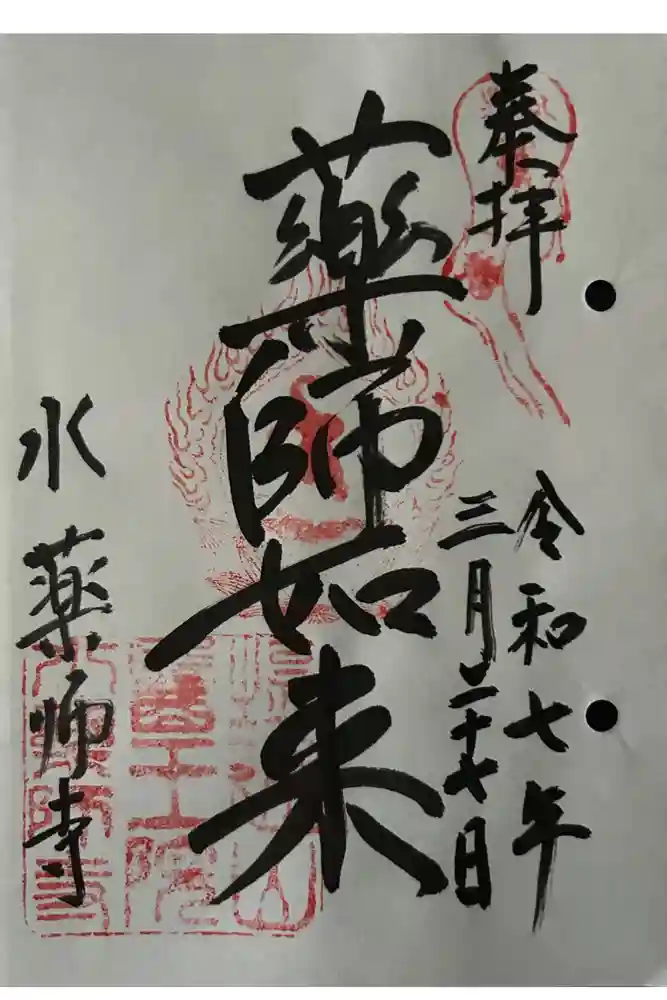 奉拝
令和七年
三月二十七日
薬師如来
水薬師寺